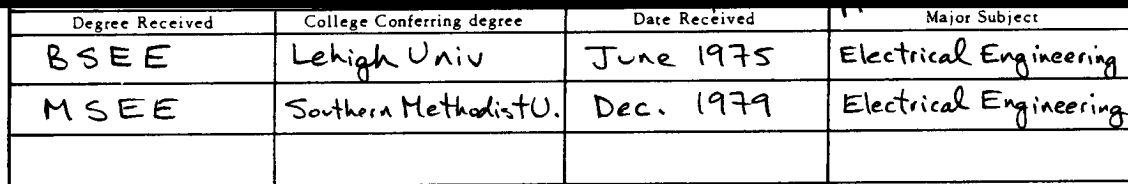 Degree Received College Conferring degree Date Received Major Subject
BSEE Lehigh Univ June 1975 Electrical Engineering
MSEE Southern Methodist U. Dec. 1979 Electrical Engineering